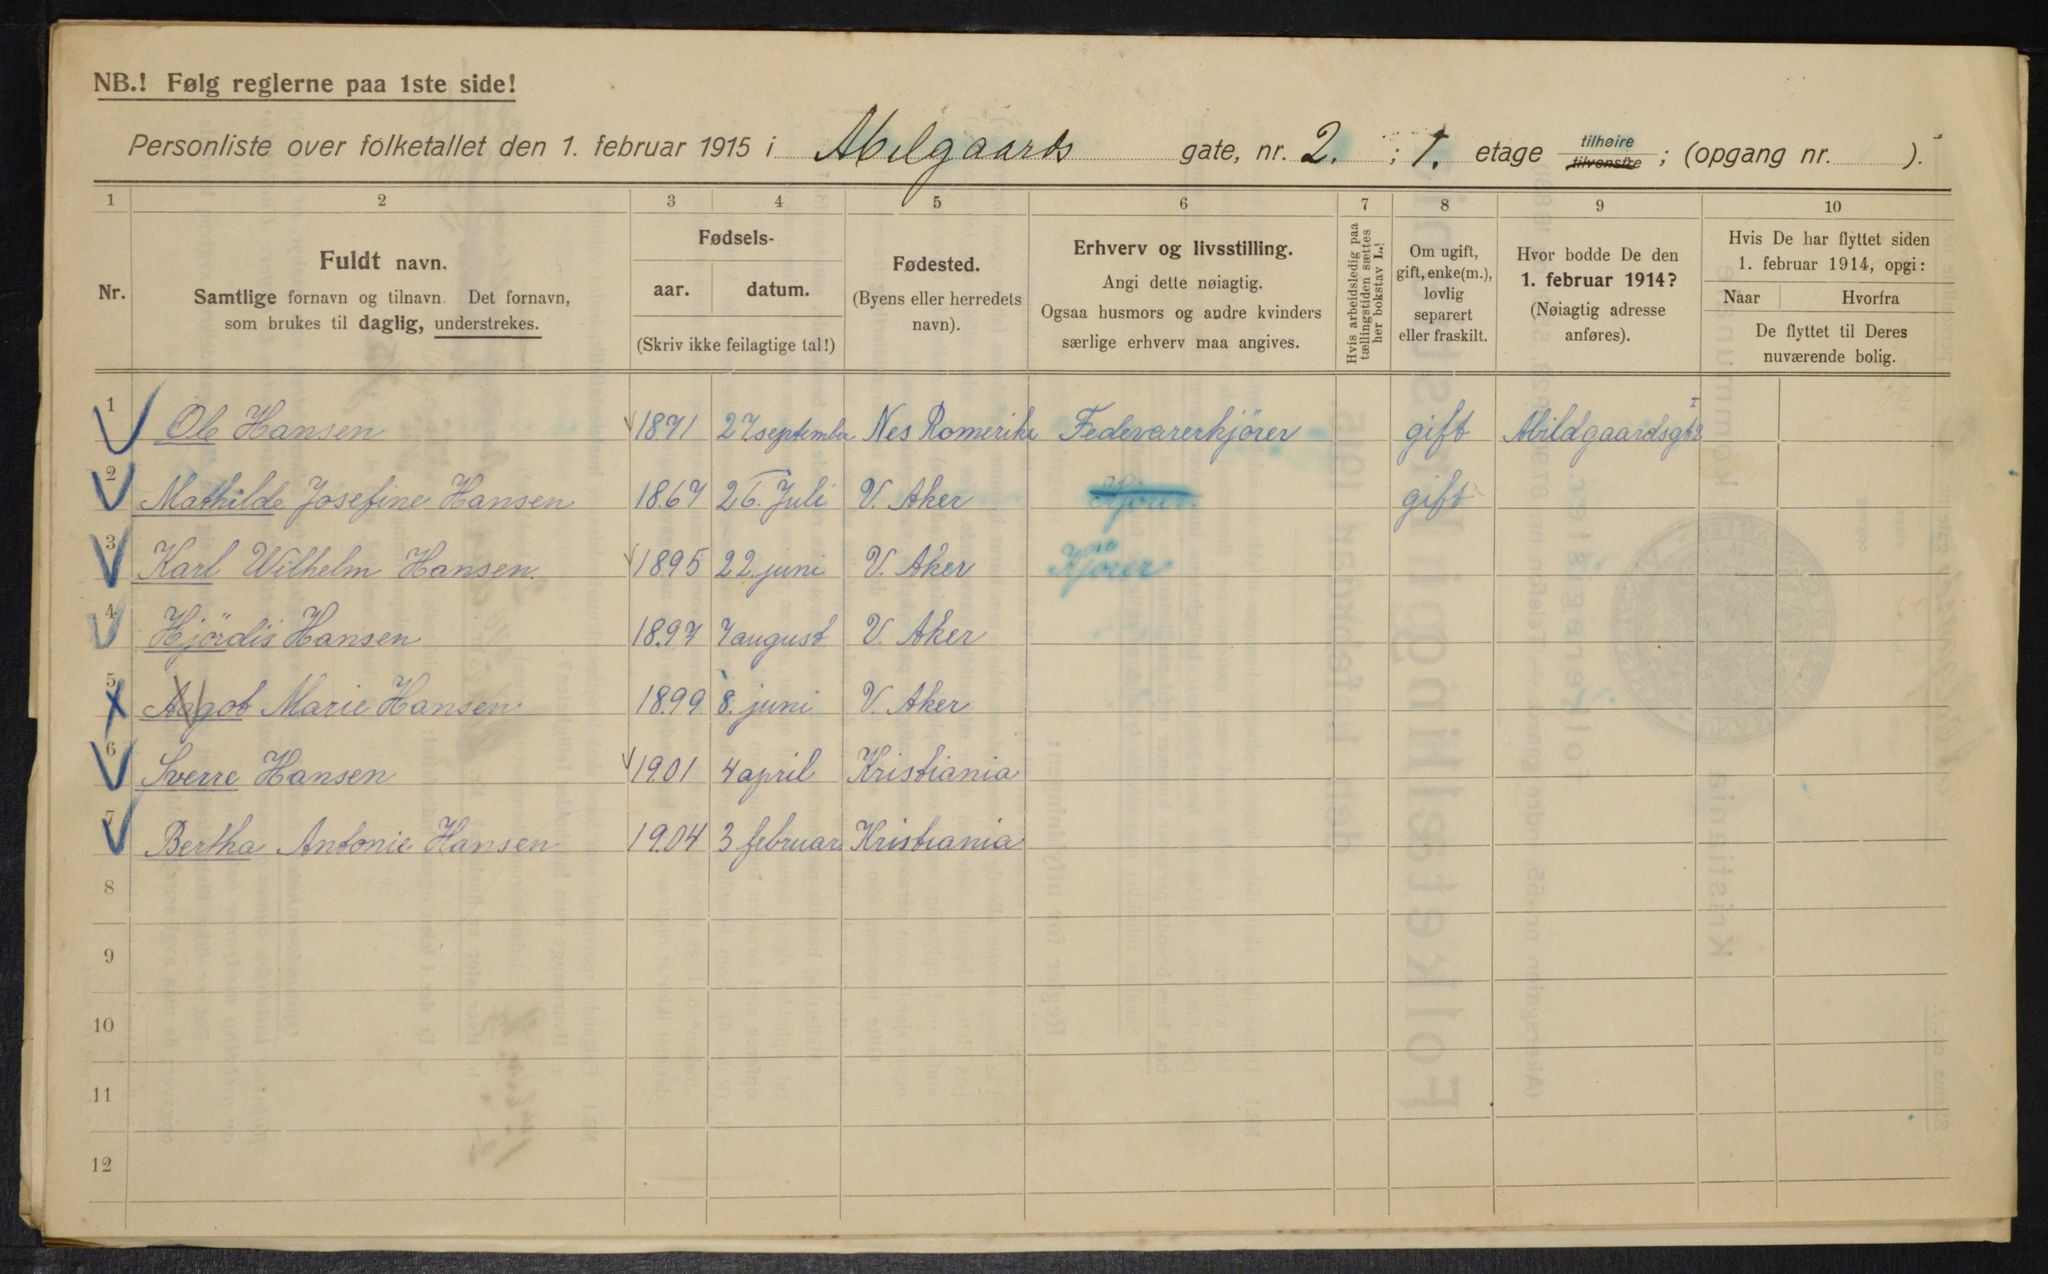 NB.! Følg reglerne paa 1ste side!
Personliste over folketallet den 1. februar 1915 i Abelgaards gate, nr. 2. ; 1. etage tilhøire tilvenstre ; (opgang nr. ).
1 2 3 4 5 6 7 8 9 10
Nr.
Fuldt navn.
Samtlige fornavn og tilnavn. Det fornavn,
som brukes til daglig, understrekes.
Fødsels-
aar. datum.
(Skriv ikke feilagtige tal!)
Fødested.
(Byens eller herredets
navn).
Erhverv og livsstilling.
Angi dette nøiagtig.
Ogsaa husmors og andre kvinders
særlige erhverv maa angives.
Hvis arbeidsledig paa
tællingstiden sættes
her bokstav L.!
Om ugift,
gift, enke(m.),
lovlig
separert
eller fraskilt.
Hvor bodde De den
1. februar 1914?
(Nøiagtig adresse
anføres).
Hvis De har flyttet siden
1. februar 1914, opgi:
Naar Hvorfra
De flyttet til Deres
nuværende bolig.
1 Ole Hansen 1871 27 september Nes Romerike Fedevarerkjører gift Abildgaardsgt 2 I
2 Mathilde Josefine Hansen 1867 26. Juli V. Aker Kjører gift
3 Karl Wilhelm Hansen. 1895 22. juni V. Aker Kjører
4 Hjördis Hansen 1897 7 august V. Aker
5 Aagot Marie Hansen 1899 8. juni V. Aker
6 Sverre Hansen 1901 4 april Kristiania
7 Bertha Antonie Hansen 1904 3 februar Kristiania
8
9
10
11
12